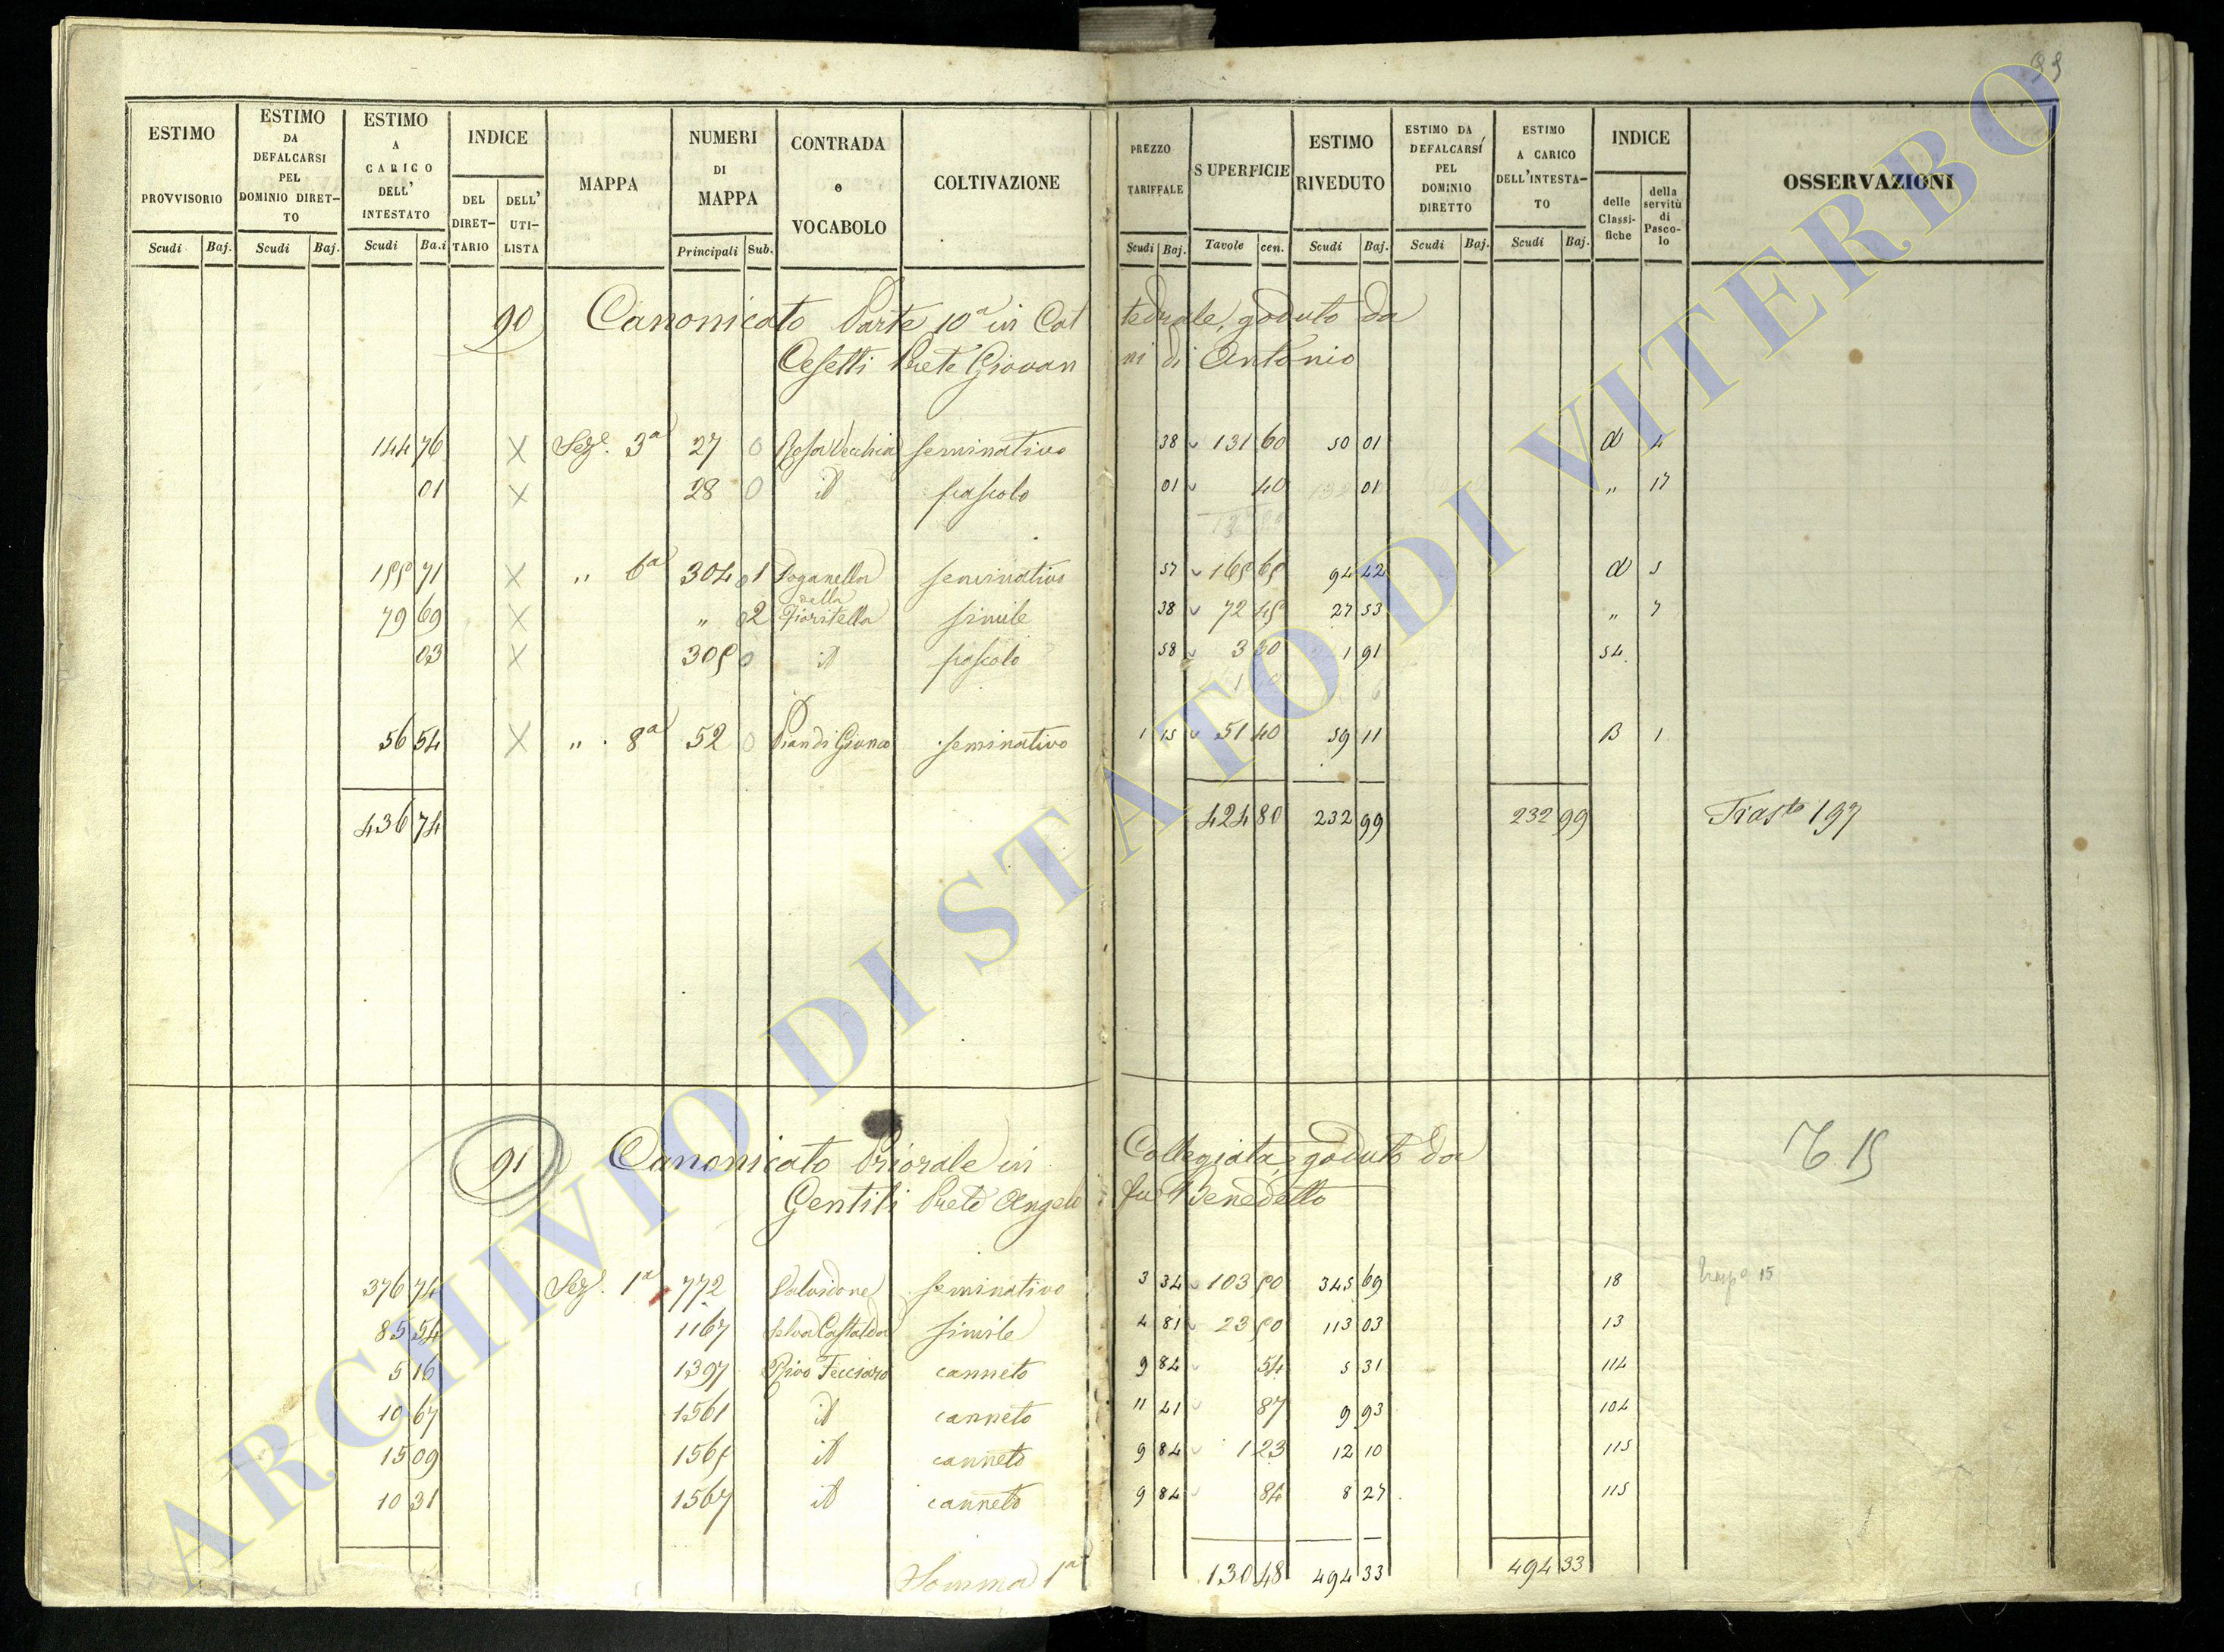 99
ESTIMO PROVVISORIO
ESTIMO DA DEFALCARSI PEL DOMINIO DIRET-TO
ESTIMO A CARICO DELL' INTESTATO
INDICE
DEL DIRET-TARIO
DELL' UTI-LISTA
MAPPA
NUMERI DI MAPPA
CONTRADA o VOCABOLO
COLTIVAZIONE
PREZZO TARIFFALE
SUPERFICIE
ESTIMO RIVEDUTO
ESTIMO DA DEFALCARSI PEL DOMINIO DIRETTO
ESTIMO A CARICO DELL'INTESTA-TO
INDICE
delle Classi-fiche
della servitù di Pasco-lo
OSSERVAZIONI
Scudi Baj. Scudi Baj. Scudi Ba.i Principali Sub. Scudi Baj. Tavole cen. Scudi Baj. Scudi Baj. Scudi Baj.
90 Canonicato Parte 10a in Cat tedrale, goduto da
Cesetti Prete Giovan ni di Antonio
144 76 X Sez.e 3a 27 0 Rosavecchia seminativo 38 131 60 50 01 d 4
01 X 28 0 id pascolo 01 40 01 " 17
155 71 X " 6a 304 1 Poganella seminativo 57 165 65 94 42 d 5
79 69 X " 2 Fioritella simile 38 72 45 27 53 " 7
03 X 305 0 id pascolo 58 3 30 1 91 54
56 54 X " 8a 52 0 Piandi Giunco seminativo 1 15 51 40 59 11 B 1
436 74 424 80 232 99 232 99 Trasto 197
91 Canonicato Priorale in Collegiata, goduto da
Gentili Prete Angelo fu Benedetto
T. 15
376 74 Sez.e 1a 772 Valvidone seminativo 3 34 103 50 345 69 18
85 54 1167 Selva Castalda simile 4 81 23 50 113 03 13
5 16 1397 Rivo Fecciaro canneto 9 84 54 5 31 114
10 67 1561 id canneto 11 41 87 9 93 104
15 09 1565 id canneto 9 84 1 23 12 10 115
10 31 1567 id canneto 9 84 84 8 27 115
Somma 1a 130 48 494 33 494 33
ARCHIVIO DI STATO DI VITERBO